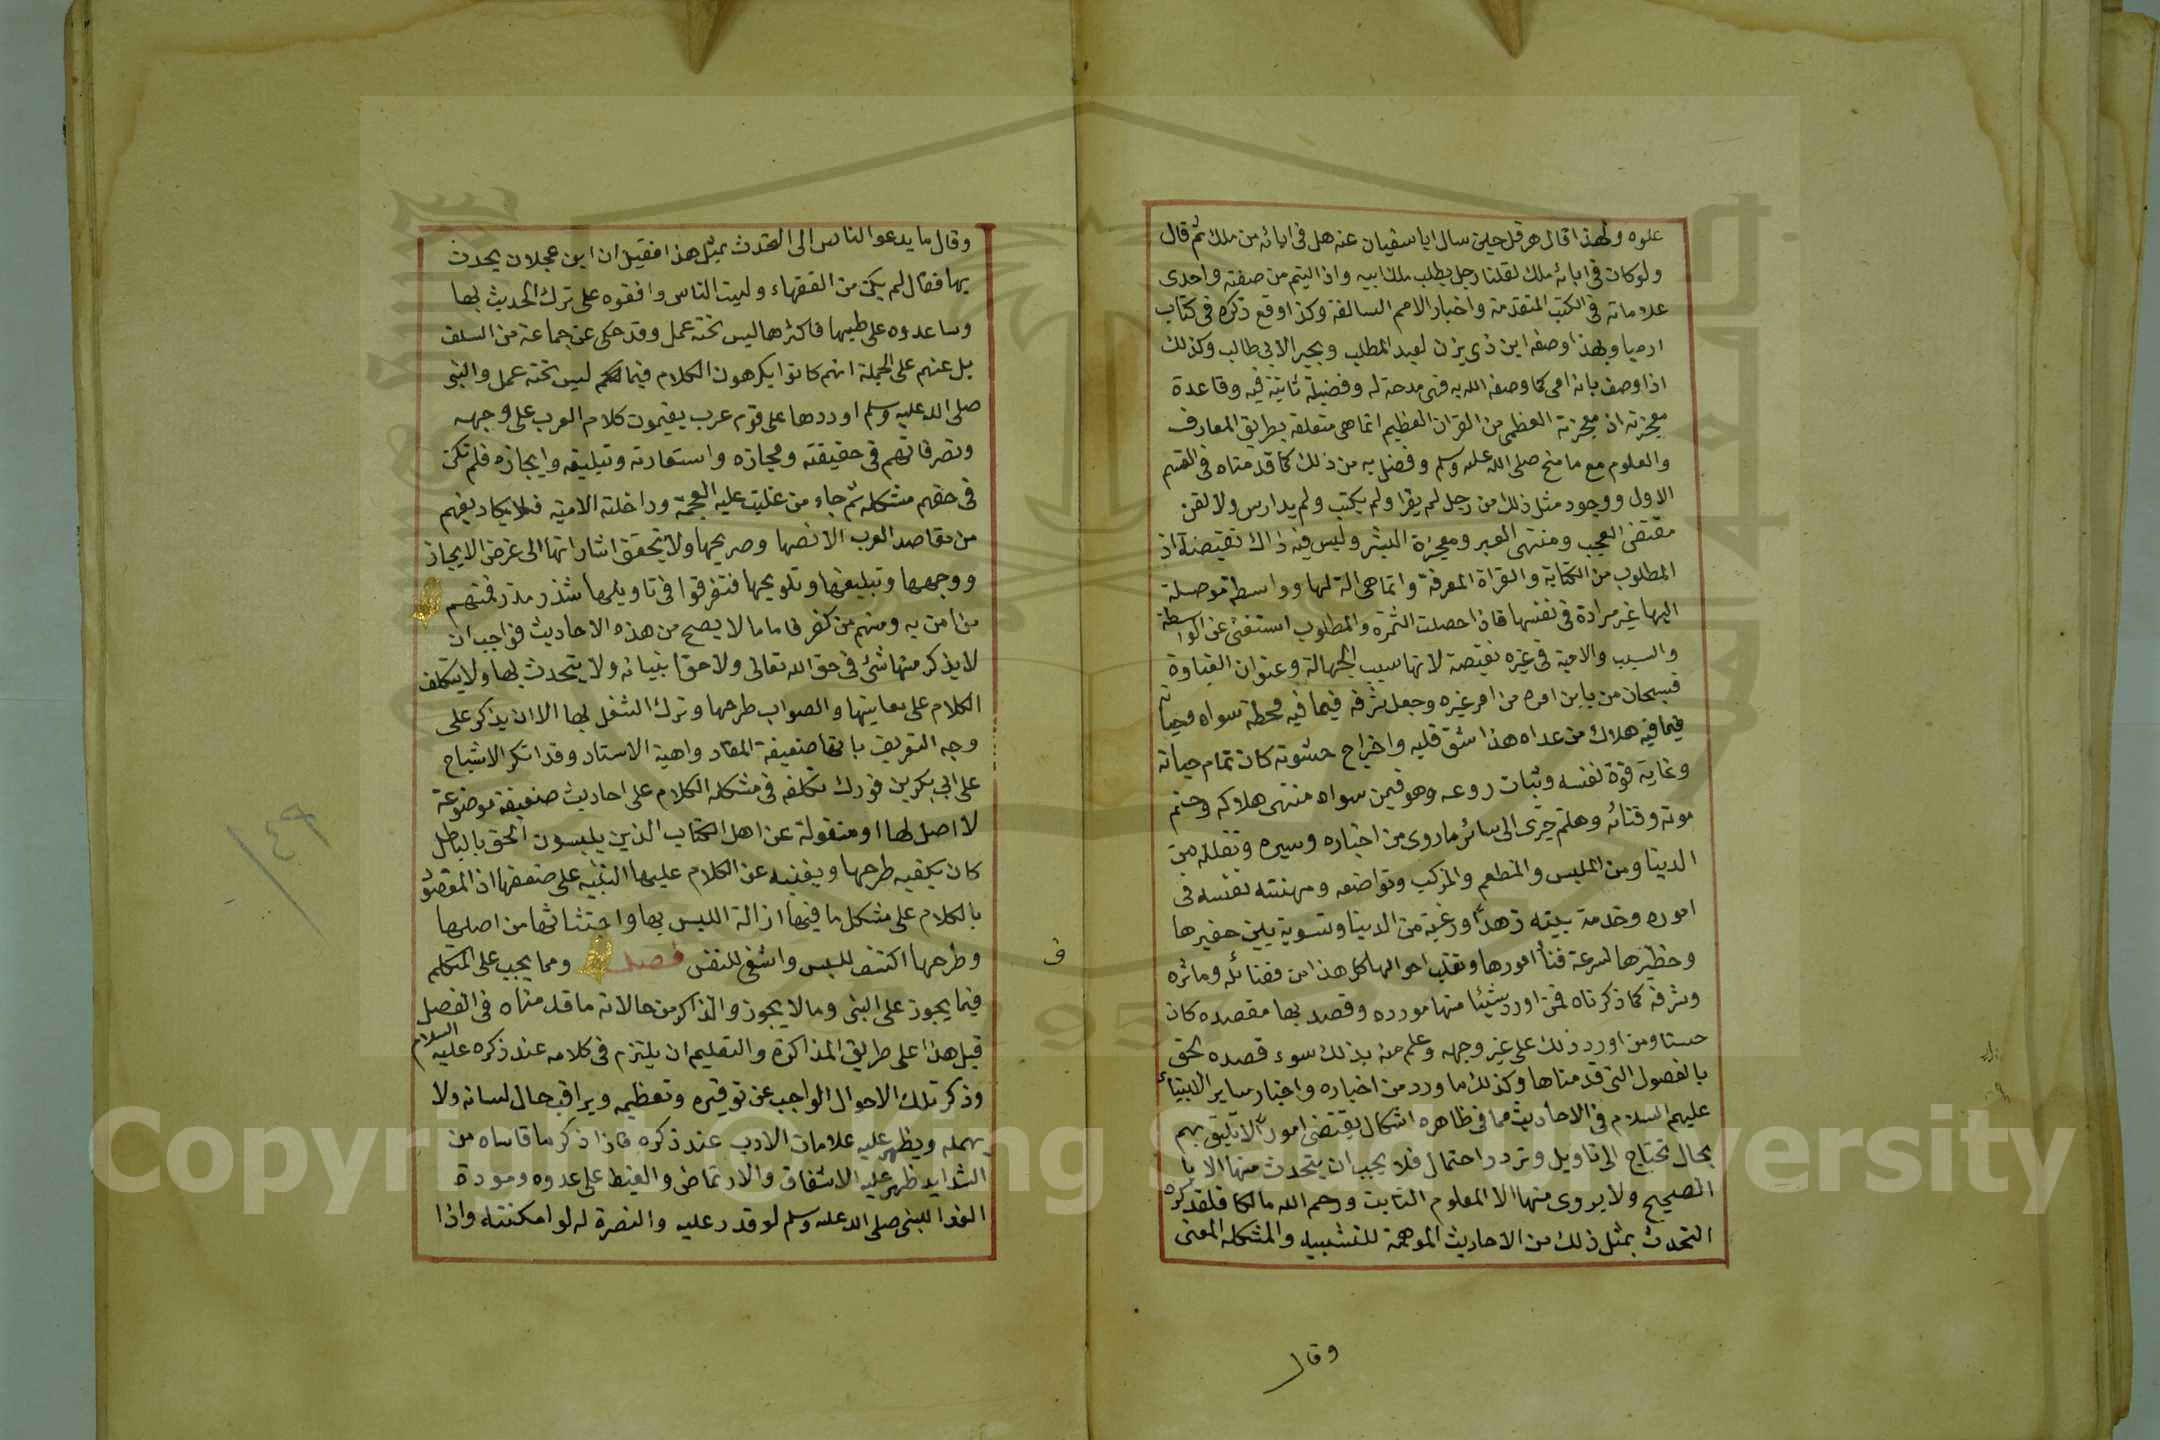 علوه ولهذا قال هرقل حين سال ابا سفيان عنه هل في ابائه من ملك ثم قال
ولو كان في ابائه ملك لقلنا رجل يطلب ملك ابيه واذا اليتم من صفته واحدى
علاماته في الكتب المتقدمة واخبار الامم السالفة وكذا وقع ذكره في كتاب
ارميا وبهذا وصفه ابن ذي يزن لعبد المطلب وبحيرا لابي طالب وكذلك
اذا وصف بانه امي كما وصفه الله به فهي مدحة له وفضيلة ثابتة فيه وقاعدة
معجزته اذ معجزته العظمى من القران العظيم انما هي متعلقة بطريق المعارف
والعلوم مع ما منح صلى الله عليه وسلم وفضل به من ذلك كما قدمناه في القسم
الاول ووجود مثل ذلك من رجل لم يقرا ولم يكتب ولم يدارس ولا لقن
مقتضى العجب ومنتهى العبر ومعجزة البشر وليس فيه ذاك نقيضة اذ
المطلوب من الكتابة والقراة المعرفة وانما هي الة لها وواسطة موصلة
اليها غير مرادة في نفسها فاذا حصلت الثمرة والمطلوب استغنى عن الواسطة
والسبب والامية في غيره نقيصة لانها سبب الجهالة وعنوان الغباوة
فسبحان من باين امره من امر غيره وجعل شرفه فيما فيه محطة سواه وحياته
فيما فيه هلاك من عداه هذا شق قلبه واخراج حشوته كان تمام حياته
وغاية قوة نفسه وثبات روعه وهو فيمن سواه منتهى هلاكه وحتم
موته وفنائه وهلم جرى الى سائر ما روي من اخباره وسيره وتقلله من
الدنيا ومن الملبس والمطعم والمركب وتواضعه ومهنته نفسه في
اموره وخدمة بيته زهدا ورغبة من الدنيا وتسوية بين حقيرها
وخطيرها لسرعة فنا امورها وتقلب احوالها كل هذا من فضائله وماثره
وشرفه كما ذكرناه فمن اورد شيئا منها مورده وقصد بها مقصده كان
حسنا ومن اورد ذلك على غير وجهه وعلم منه بذلك سوء قصده لحق
بالفصول التي قدمناها وكذلك ما ورد من اخباره واخبار ساير النبياء
عليهم السلام في الاحاديث مما في ظاهره اشكال يقتضى امورا لا تليق بهم
بحال تحتاج الى تاويل وتردد احتمال فلا يجب ان يتحدث منها الا با
الصحيح ولا يروى منها الا المعلوم الثابت ورحم الله مالكا فلقد كره
التحدث بمثل ذلك من الاحاديث الموهمة للتشبيه والمشكلة المعنى
وقال
وقال ما يدعو الناس الى التحدث بمثل هذا فقيل ان ابن عجلان يحدث
بها فقال لم يكن من الفقهاء وليت الناس وافقوه على ترك الحديث بها
وساعدوه على طيها فاكثرها ليس تحته عمل وقد حكى عن جماعة من السلف
بل عنهم على الجملة انهم كانوا يكرهون الكلام فيما ليس تحته عمل والنبي
صلى الله عليه وسلم اوردها على قوم عرب يفهمون كلام العرب على وجهه
وتصرفاتهم في حقيقته ومجازه واستعارته وتبليغه وايجازه فلم تكن
في حقهم مشكلة ثم جاء من غلبت عليه العجمة وداخلته الامية فلا يكاد يفهم
من مقاصد العرب الا نصها وصريحها ولا يتحقق اشاراتها الى غرض الايجاز
ووجهها وتبليغها وتلويحها فتفرقوا في تاويلها شذر مذر فمنهم
من امن به ومنهم من كفر فاما ما لا يصح من هذه الاحاديث فواجب ان
لا يذكر منها شئ في حق الله تعالى ولا حق انبيائه ولا يتحدث بها ولا يتكلف
الكلام على معانيها والصواب طرحها وترك الشغل بها الا ان يذكر على
وجه التعريف بانها ضعيفة المفاد واهية الاسناد وقد انكر الاشياخ
على ابي بكر بن فورك تكلفه في مشكله الكلام على احاديث ضعيفة موضوعة
لا اصل لها او منقولة عن اهل الكتاب الذين يلبسون الحق بالباطل
كان يكفيه طرحها ويغنيه عن الكلام عليها التنبيه على ضعفها اذ المقصود
بالكلام على مشكل ما فيها ازالة اللبس بها واجتثاثها من اصلها
وطرحها اكشف للبس واشفى للنفس فصل ومما يجب على المتكلم
فيما يجوز على النبي وما لا يجوز والذاكر من حالاته ما قدمناه في الفصل
قبل هذا على طريق المذاكرة والتعليم ان يلتزم في كلامه عند ذكره عليه السلام
وذكر تلك الاحوال الواجب عن توقيره وتعظيمه ويراقب حال لسانه ولا
يهمله ويظهر عليه علامات الادب عند ذكره فاذا ذكر ما قاساه من
الشدايد ظهر عليه الاشفاق والارتماض والغيظ على عدوه ومودة
الفدا للنبي صلى الله عليه وسلم لو قدر عليه والنصرة له لو امكنته واذا
ف
١٤٩
Copyright © King Saud University
1957